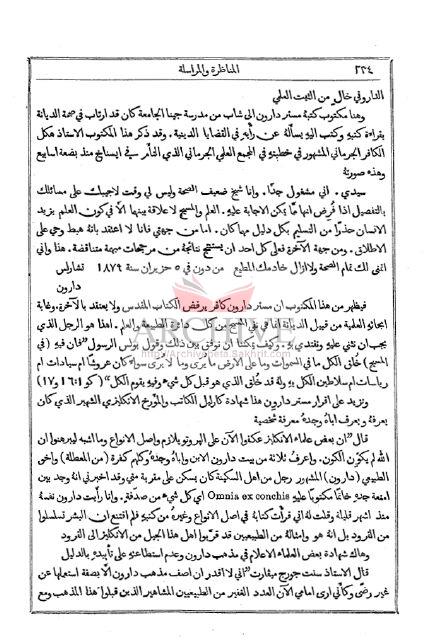 ٢٣٤
المناظرة والمراسلة
الداروني خال من الثبت العلمي
وهنا مكتوب كتبهُ مستر دارون الى شاب من مدرسة جينا الجامعة كان قد ارتاب في صحة الديانة
بقراءة كتبهِ وكتب اليهِ يسألهُ عن رأيهِ في القضايا الدينية. وقد ذكر هذا المكتوب الاستاذ هكل
الكافر الجرماني المشهور في خطبتهِ في المجمع العلمي الجرماني الذي التأم في ايسناخ منذ بضعة اسابيع
وهذه صورتهُ
سيدي. اني مشغول جدًا. وانا شيخ ضعيف الصحة وليس لي وقت لاجيبك على مسائلك
بالتفصيل اذا فُرض انها مما يمكن الاجابة عليهِ. العلم والمسيح لا علاقة بينها الا في كون العلم يزيد
الانسان حذرًا من التسليم بكل دليل مهما كان. اما من جهتي فانا لا اعتقد بانهُ هبط وحي على
الاطلاق. ومن جهة الآخرة فعلى كل احد ان يستنتج نتيجة من مرجحات مبهمة متناقضة. هذا واني
اتمنى لك تمام الصحة ولا ازال خادمك المطيع من دون في ٥ حزيران سنة ١٨٧٩ تشارلس
دارون
فيظهر من هذا المكتوب ان مستر دارون كافر يرفض الكتاب المقدس ولا يعتقد بالآخرة. وغاية
ابحاثهِ العلمية من قبيل الديانة انما هي نفي المسيح من كل دائرة الطبيعة والعلم. اهذا هو الرجل الذي
يجب ان نثني عليهِ ونقتدي بهِ. وكيف يمكننا ان نوفق بين ذلك وقول بولس الرسول "فان فيهِ (في
المسيح) خُلق الكل ما في السموات وما على الارض ما يُرى وما لا يُرى سواء كان عروشًا ام سيادات ام
رياسات ام سلاطين الكل بهِ ولهُ قد خُلق الذي هو قبل كل شيء وفيهِ يقوم الكل" (كو ١: ١٦ و١٧)
ونزيد على اقرار مستر دارون هذا شهادة كارليل الكاتب والمؤرخ الانكليزي الشهير الذي كان
يعرفهُ ويعرف اباهُ وجدهُ معرفة شخصية
قال "ان بعض علماء الانكليز عكفوا الآن على البروتوبلازم واصل الانواع وما اشبه ليبرهنوا ان
الله لم يكوّن الكون. واعرف ثلاثة من بيت دارون الابن واباهُ وجدهُ وكلهم كفرة (من المعطلة) واخي
الطبيعي (دارون) المشهور رجل من اهل السكينة كان يسكن على مقربة مني وقد اخبرني انهُ وجد بين
امتعة جدهِ خاتمًا مكتوبًا عليهِ Omnia ex conchis اي كل شيء من صدفة. وانا رأيت دارون نفسهُ
منذ اشهر قليلة وقلت لهُ اني قرأت كتابهُ في اصل الانواع وغيرهُ من كتبهِ فلم اقتنع ان البشر تسلسلوا
من القرود بل انهُ هو وامثالهُ من الطبيعيين قد قرّبوا اهل هذا الجيل من الانكليز الى القرود
وهاك شهادة بعض العلماء الاعلام في مذهب دارون وعدم استطاعتهِ على تأييدهِ بالدليل
قال الاستاذ سنت جورج ميفارت "اني لا اقدر ان اصف مذهب دارون الا بصفة استعملها عن
غير رضى وكأني ارى امامي الآن العدد الغفير من الطبيعيين المشاهير الذين قبلوا هذا المذهب ومع
ARCHIVE
http://Archivebeta.Sakhrit.com